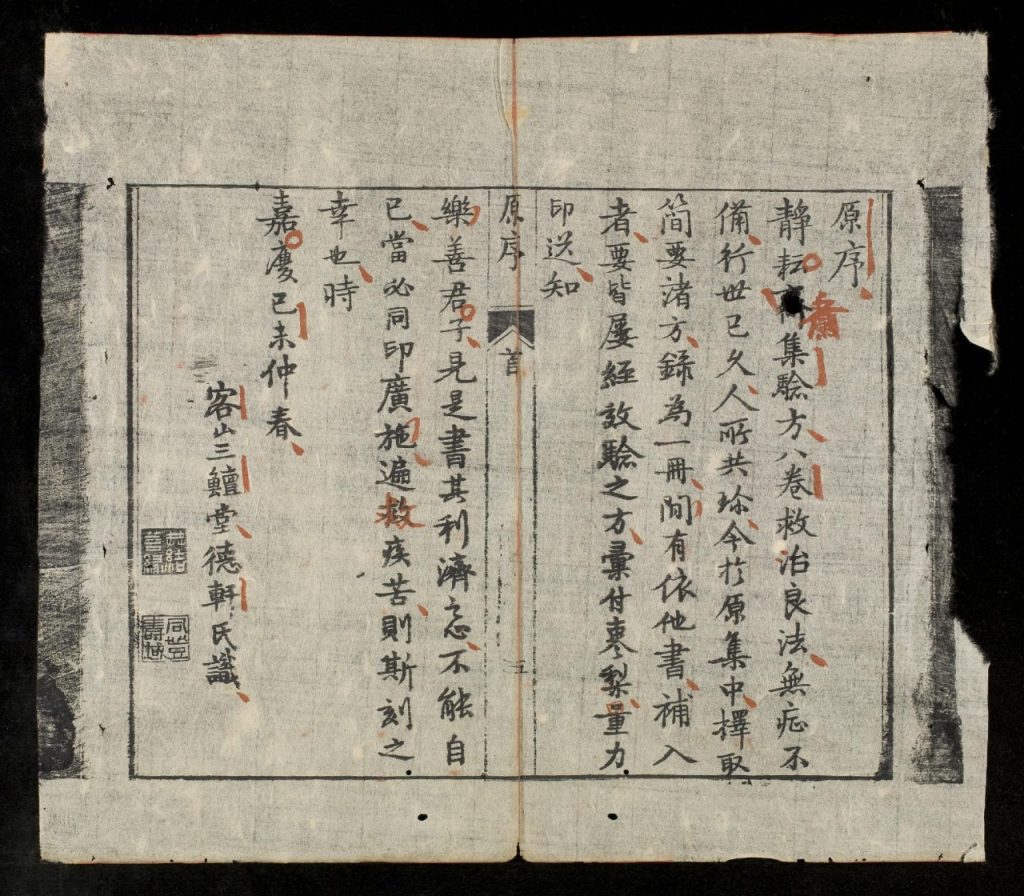 原序
靜耘齋集驗方八卷救治良法無症不
備行世已久人所共珎今於原集中擇取
簡要諸方錄為一冊間有依他書補入
者要皆屢經效驗之方彙付棗梨量力
印送知
原序
首
五
樂善君子見是書其利濟之念不能自
已當必同印廣施遍救疾苦則斯刻之
幸也時
嘉慶已未仲春
客山三鱣堂德軒氏識
同登
壽域